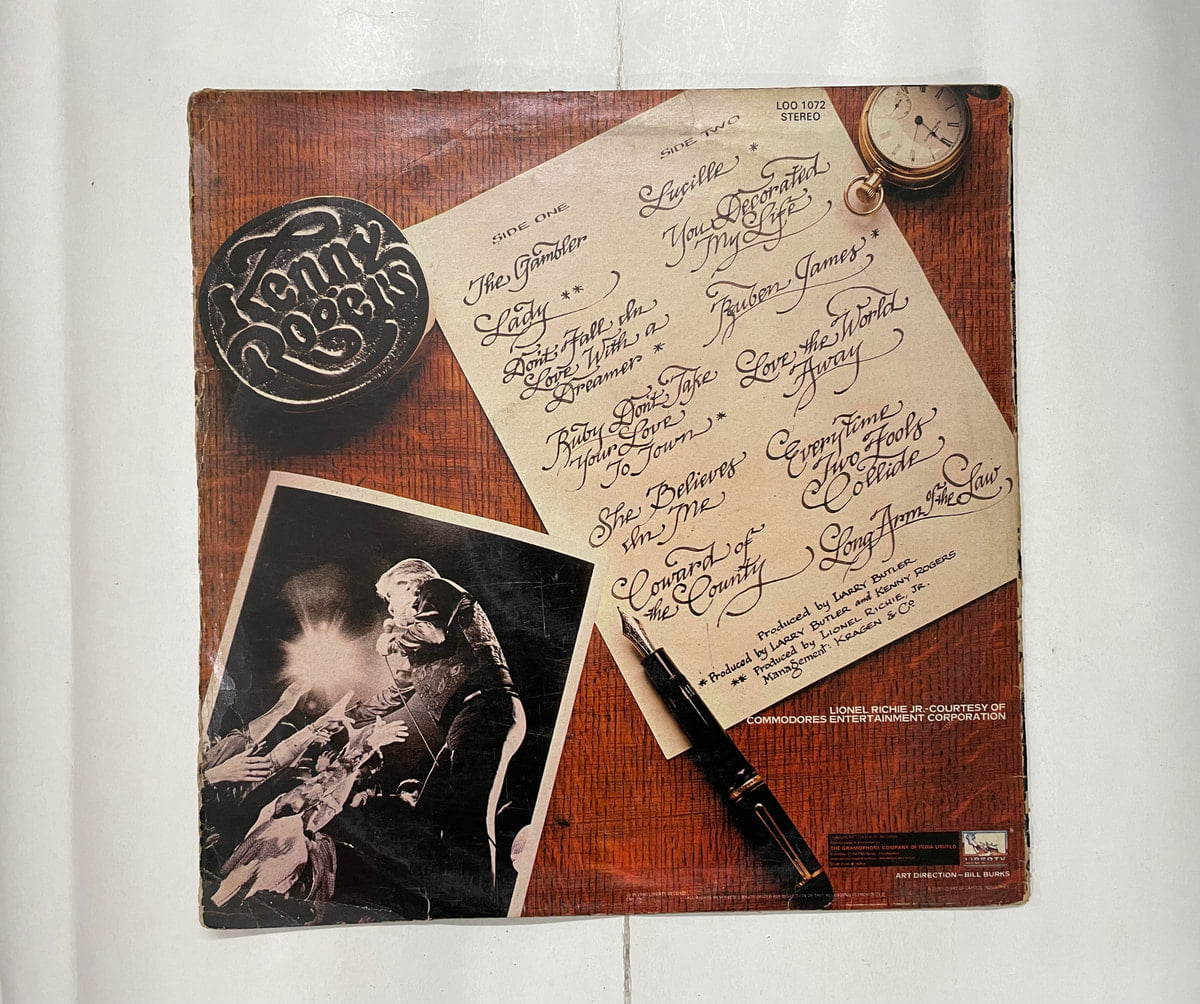 LOO 1072
STEREO
Kenny
Rogers
SIDE ONE
The Gambler
Lady **
Don't Fall In
Love With a
Dreamer *
Ruby Don't Take
Your Love
To Town *
She Believes
In Me
Coward of
the County
SIDE TWO
Lucille *
You Decorated
My Life
Ruben James *
Love the World
Away
Everytime
Two Fools
Collide
Long Arm of the Law
Produced by LARRY BUTLER.
*Produced by LARRY BUTLER and KENNY ROGERS
** Produced by LIONEL RICHIE, JR.
Management: KRAGEN & Co
LIONEL RICHIE JR.-COURTESY OF
COMMODORES ENTERTAINMENT CORPORATION
THE GRAMOPHONE COMPANY OF INDIA LIMITED
LIBERTY
ART DIRECTION—BILL BURKS